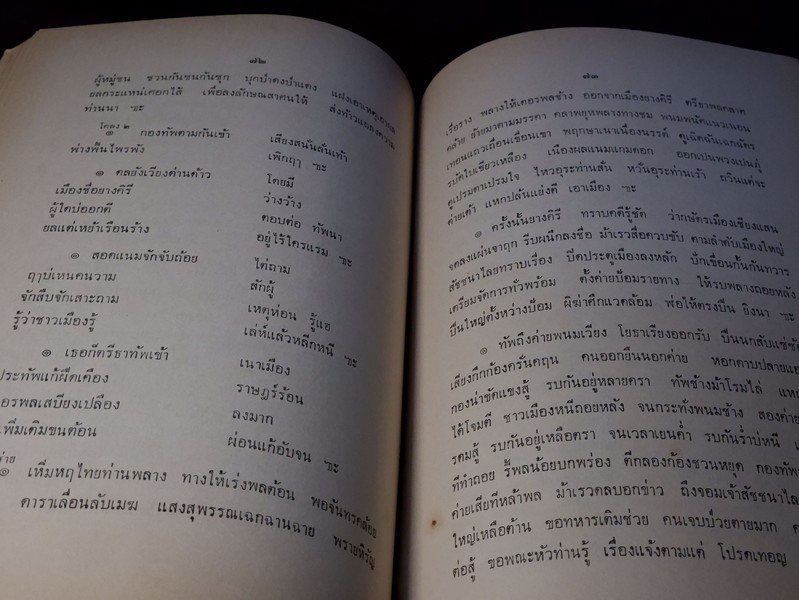 ๗๒
ผู้หมู่ชน ชวนกันชนกันชุก บุกบำดงบำแดง แฝงเอาเหตุ
ยลกระแหน่เศอกไส้ เพื่อลงลักษณสาศนให้ ส่งท้าวแถลงความ
ท่านนา ฯะ
โคลง ๒
๑ กองทัพตามกันเข้า เสียงสนั่นลั่นเท้า
พ่างพื้นไพรพัง เพิกฤๅ ฯะ
๑ ดลยังเวียงด่านด้าว โดยมี
เมืองชื่อยางคิรี ว่างว้าง
ผู้ใดบ่ออกตี ตอบต่อ ทัพนา
ยลแต่เหย้าเรือนร้าง อยู่ไร้ใครแรม ฯะ
๑ สอดแนมจักจับถ้อย ไต่ถาม
ฤๅบ่เหนคนวาม สักผู้
จักสืบจักเสาะถาม เหตุห่อน รู้แฮ
รู้ว่าชาวเมืองรู้ เล่ห์แล้วหลีกหนี ฯะ
๑ เธอก็ตรีธาทัพเข้า เนาเมือง
ประทัพแก้ผืดเคือง ราษฎร์ร้อน
พลเสบียงเปลือง ลงมาก
เพิ่มเติมขนต้อน ผ่อนแก้อับจน ฯะ
๑ เหิ่มหฤไทยท่านพลาง ทางให้เร่งพลต้อน พอจันทรคล้อย
ดาราเลื่อนลับเมฆ แสงสุพรรณเฉกฉานฉาย พรายหิรัญ
๗๓
เรื่อราง พลางให้เดอรพลช้าง ออกจากเมืองยางคิรี ตรีธาพลคลาศ
คล้าย ย้ายมาตามมรรคา คลาพยุหพลางชม พนมพนัศแนวเนอน
เทอนแถวเถื่อนเขื่อนเขา พฤกษาเนาเนื่องนรรค์ ดูเฉิดฉันเฉกฉัตร
รบัดใบเขียวเหลือง เนืองผลแนมแกมดอก ออกเปนพวงเปนภู่
ดูเปรมตาเปรมใจ ไหวอุระท่านสั่น หวั่นอุระท่านเร้า ถวินแต่จะ
ค่ายเต้า แหกปล้นแย่งตี เอาเมือง ฯะ
๑ ครั้งนั้นยางคิรี ทราบคดีรู้ชัด ว่ากษัตรเมืองเชียงแสน
จดลงแผ่นจาฤก รีบผนึกลงชื่อ ม้าเรวสื่อควบขับ ตามลำดับเมืองใหญ่
สัชชนาไลยทราบเรื่อง ปิดประตูเมืองลงหลัก ปักเขื่อนกั้นกันทวาร
เตรียมจัดการทั่วพร้อม ตั้งค่ายป้อมรายทาง ให้รบพลางถอยหลัง
ปืนใหญ่ตั้งหว่างป้อม ผิฆ่าศึกแวดล้อม พ่อให้ตรงปืน ยิงนา ฯะ
๑ ทัพถึงค่ายพนมเวียง โยธาเรียงออกรับ ปืนนกสับแซ่ซัด
เสียงกึกก้องครั่นคฤน คนออกยืนนอกค่าย หอกดาบปลาย
กองน่าขัดแขงสู้ รบกันอยู่หลายครา ทัพช้างม้าโรมไล่
ได้โจมตี ชาวเมืองหนีถอยหลัง จนกระทั่งพนมช้าง สองค่าย
รดมสู้ รบกันอยู่เหลือตรา จนเวลาเยนค่ำ รบกันร่ำบ่หนี
ทีทำถอย รี้พลน้อยบกพร่อง ตีกลองก้องชวนหยุด กองทัพ
ค่ายเสียทีหล้าพล ม้าเรวดลบอกข่าว ถึงจอมเจ้าสัชชนาไล
ใหญ่เหลือต้าน ขอทหารเติมช่วย คนเจบป่วยตายมาก
ต่อสู้ ขอพณะหัวท่านรู้ เรื่องแจ้งตามแต่ โปรดเทอญ